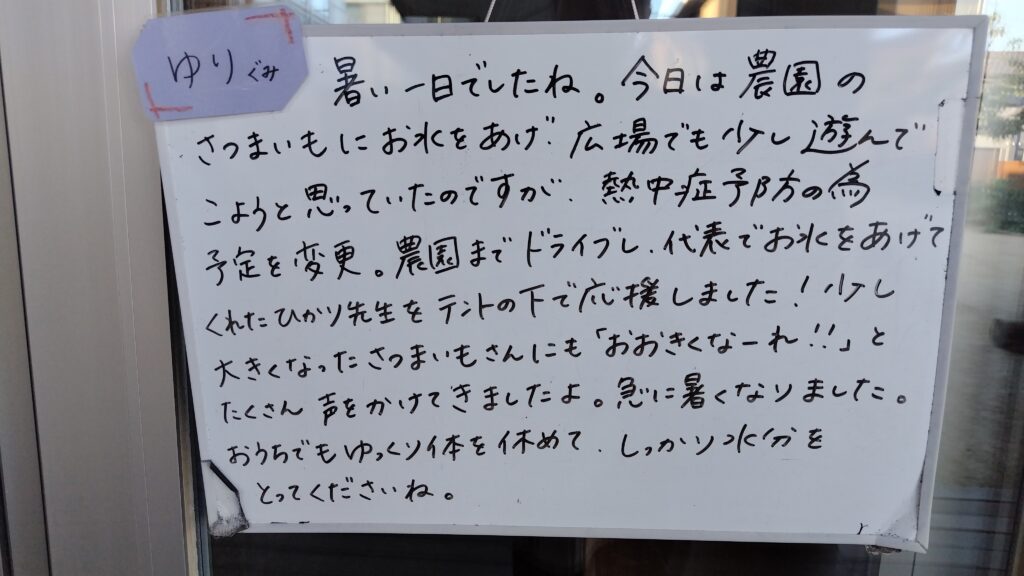 ゆりぐみ
暑い一日でしたね。今日は農園の
さつまいもにお水をあげ、広場でも少し遊んで
こようと思っていたのですが、熱中症予防の為
予定を変更。農園までドライブし、代表でお水をあげて
くれたひかり先生をテントの下で応援しました！少し
大きくなったさつまいもさんにも「おおきくなーれ!!」と
たくさん声をかけてきましたよ。急に暑くなりました。
おうちでもゆっくり体を休めて、しっかり水分を
とってくださいね。